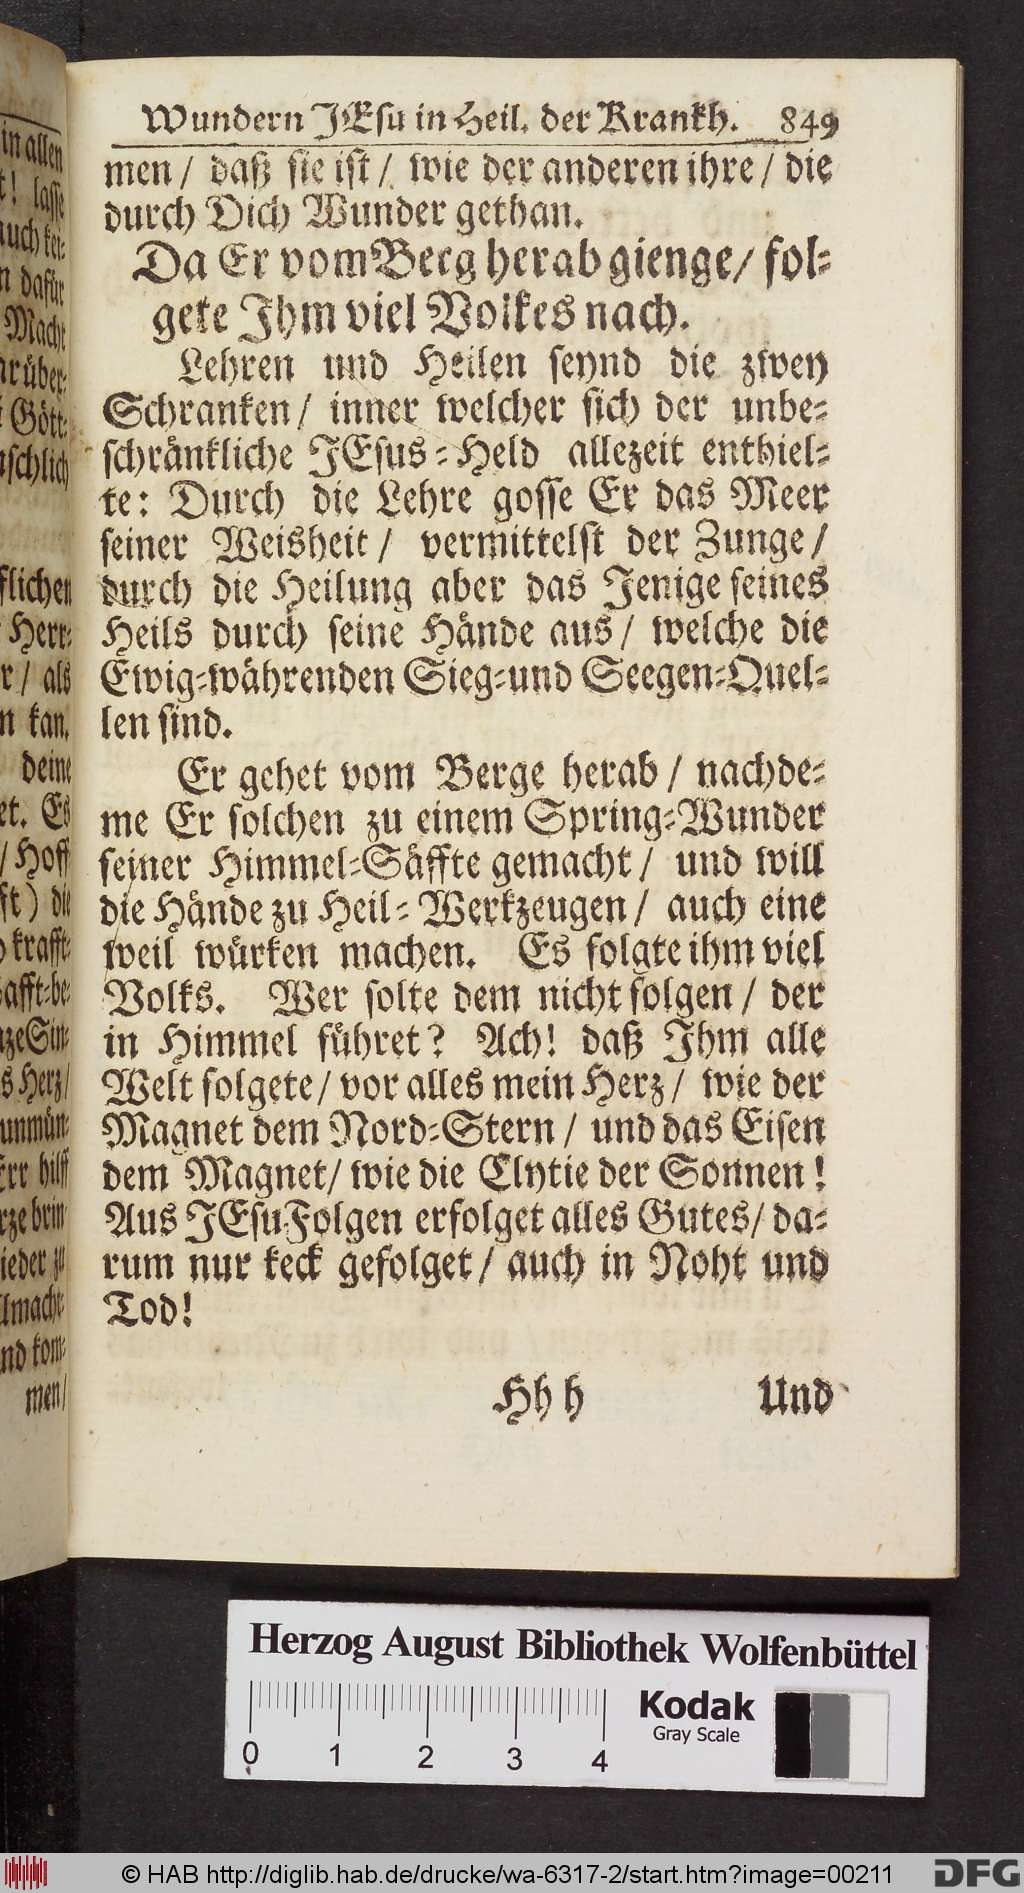 Wundern JEsu in Heil. der Krankh. 849
men / daß sie ist / wie der anderen ihre / die
durch Dich Wunder gethan.
Da Er vom Berg herab gienge / fol-
gete Ihm viel Volkes nach.
Lehren und Heilen seynd die zwey
Schranken / inner welcher sich der unbe-
schränkliche JEsus-Held allezeit enthiel-
te: Durch die Lehre gosse Er das Meer
seiner Weisheit / vermittelst der Zunge /
durch die Heilung aber das Jenige seines
Heils durch seine Hände aus / welche die
Ewig-währenden Sieg-und Seegen-Quel-
len sind.
Er gehet vom Berge herab / nachde-
me Er solchen zu einem Spring-Wunder
seiner Himmel-Säffte gemacht / und will
die Hände zu Heil-Werkzeugen / auch eine
weil würken machen. Es folgte ihm viel
Volks. Wer solte dem nicht folgen / der
in Himmel führet? Ach! daß Ihm alle
Welt folgete / vor alles mein Herz / wie der
Magnet dem Nord-Stern / und das Eisen
dem Magnet / wie die Clytie der Sonnen!
Aus JEsu Folgen erfolget alles Gutes / da-
rum nur keck gefolget / auch in Noht und
Tod!
Hhh Und
in allen
t! lasse
auch kei-
n dafür
Macht
Gött-
schlich
flichen
Herr-
r / als
n kan.
deine
et. Es
/ Hoff
ft) die
krafft-
afft-be-
ze Sin-
s Herz /
unmün-
Err hilff
rze brin-
ieder zu
lmacht-
nd kom-
men /
Herzog August Bibliothek Wolfenbüttel
Kodak
Gray Scale
0 1 2 3 4
© HAB http://diglib.hab.de/drucke/wa-6317-2/start.htm?image=00211
DFG